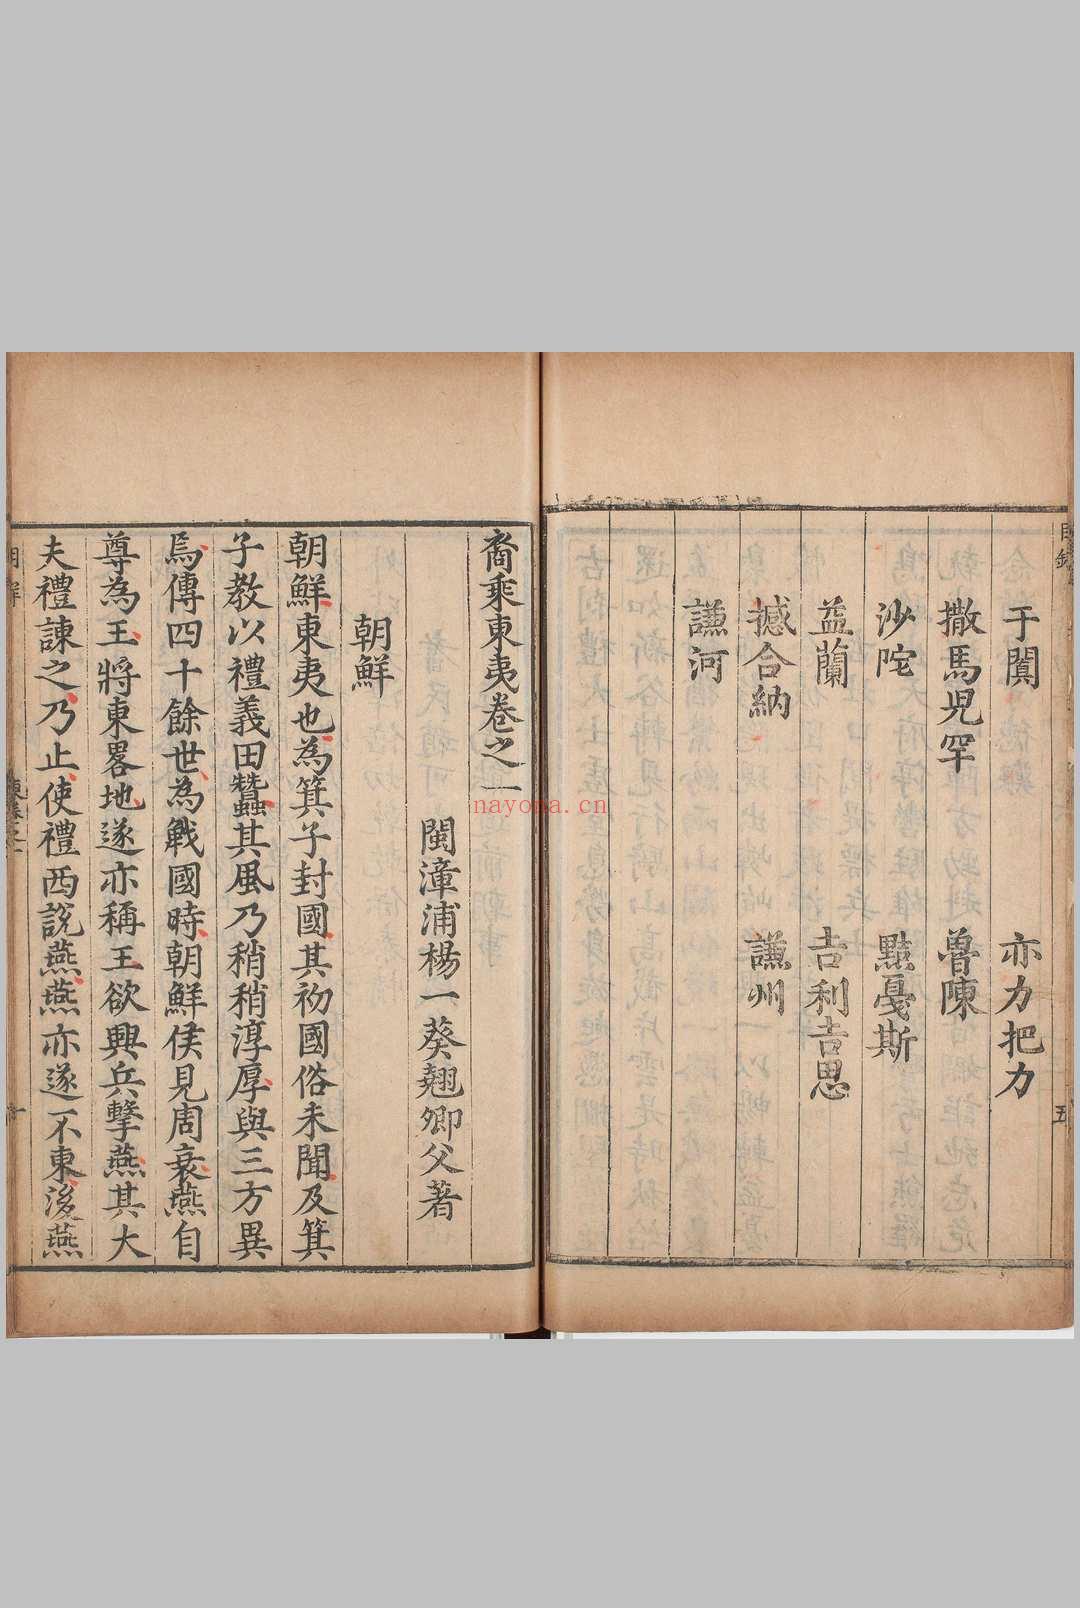 目錄
于闐 亦力把力
撒馬兒罕 魯陳
沙陀 黠戛斯
益蘭 吉利吉思
撼合納 謙州
謙河
五
裔乘東夷卷之一
閩漳浦楊一葵翹卿父著
朝鮮
朝鮮東夷也為箕子封國其初國俗未聞及箕
子教以禮義田蠶其風乃稍稍淳厚與三方異
焉傳四十餘世為戰國時朝鮮侯見周衰燕自
尊為王將東畧地遂亦稱王欲興兵擊燕其大
夫禮諫之乃止使禮西說燕燕亦遂不東後燕
朝鮮
東卷之一
nayona.cn